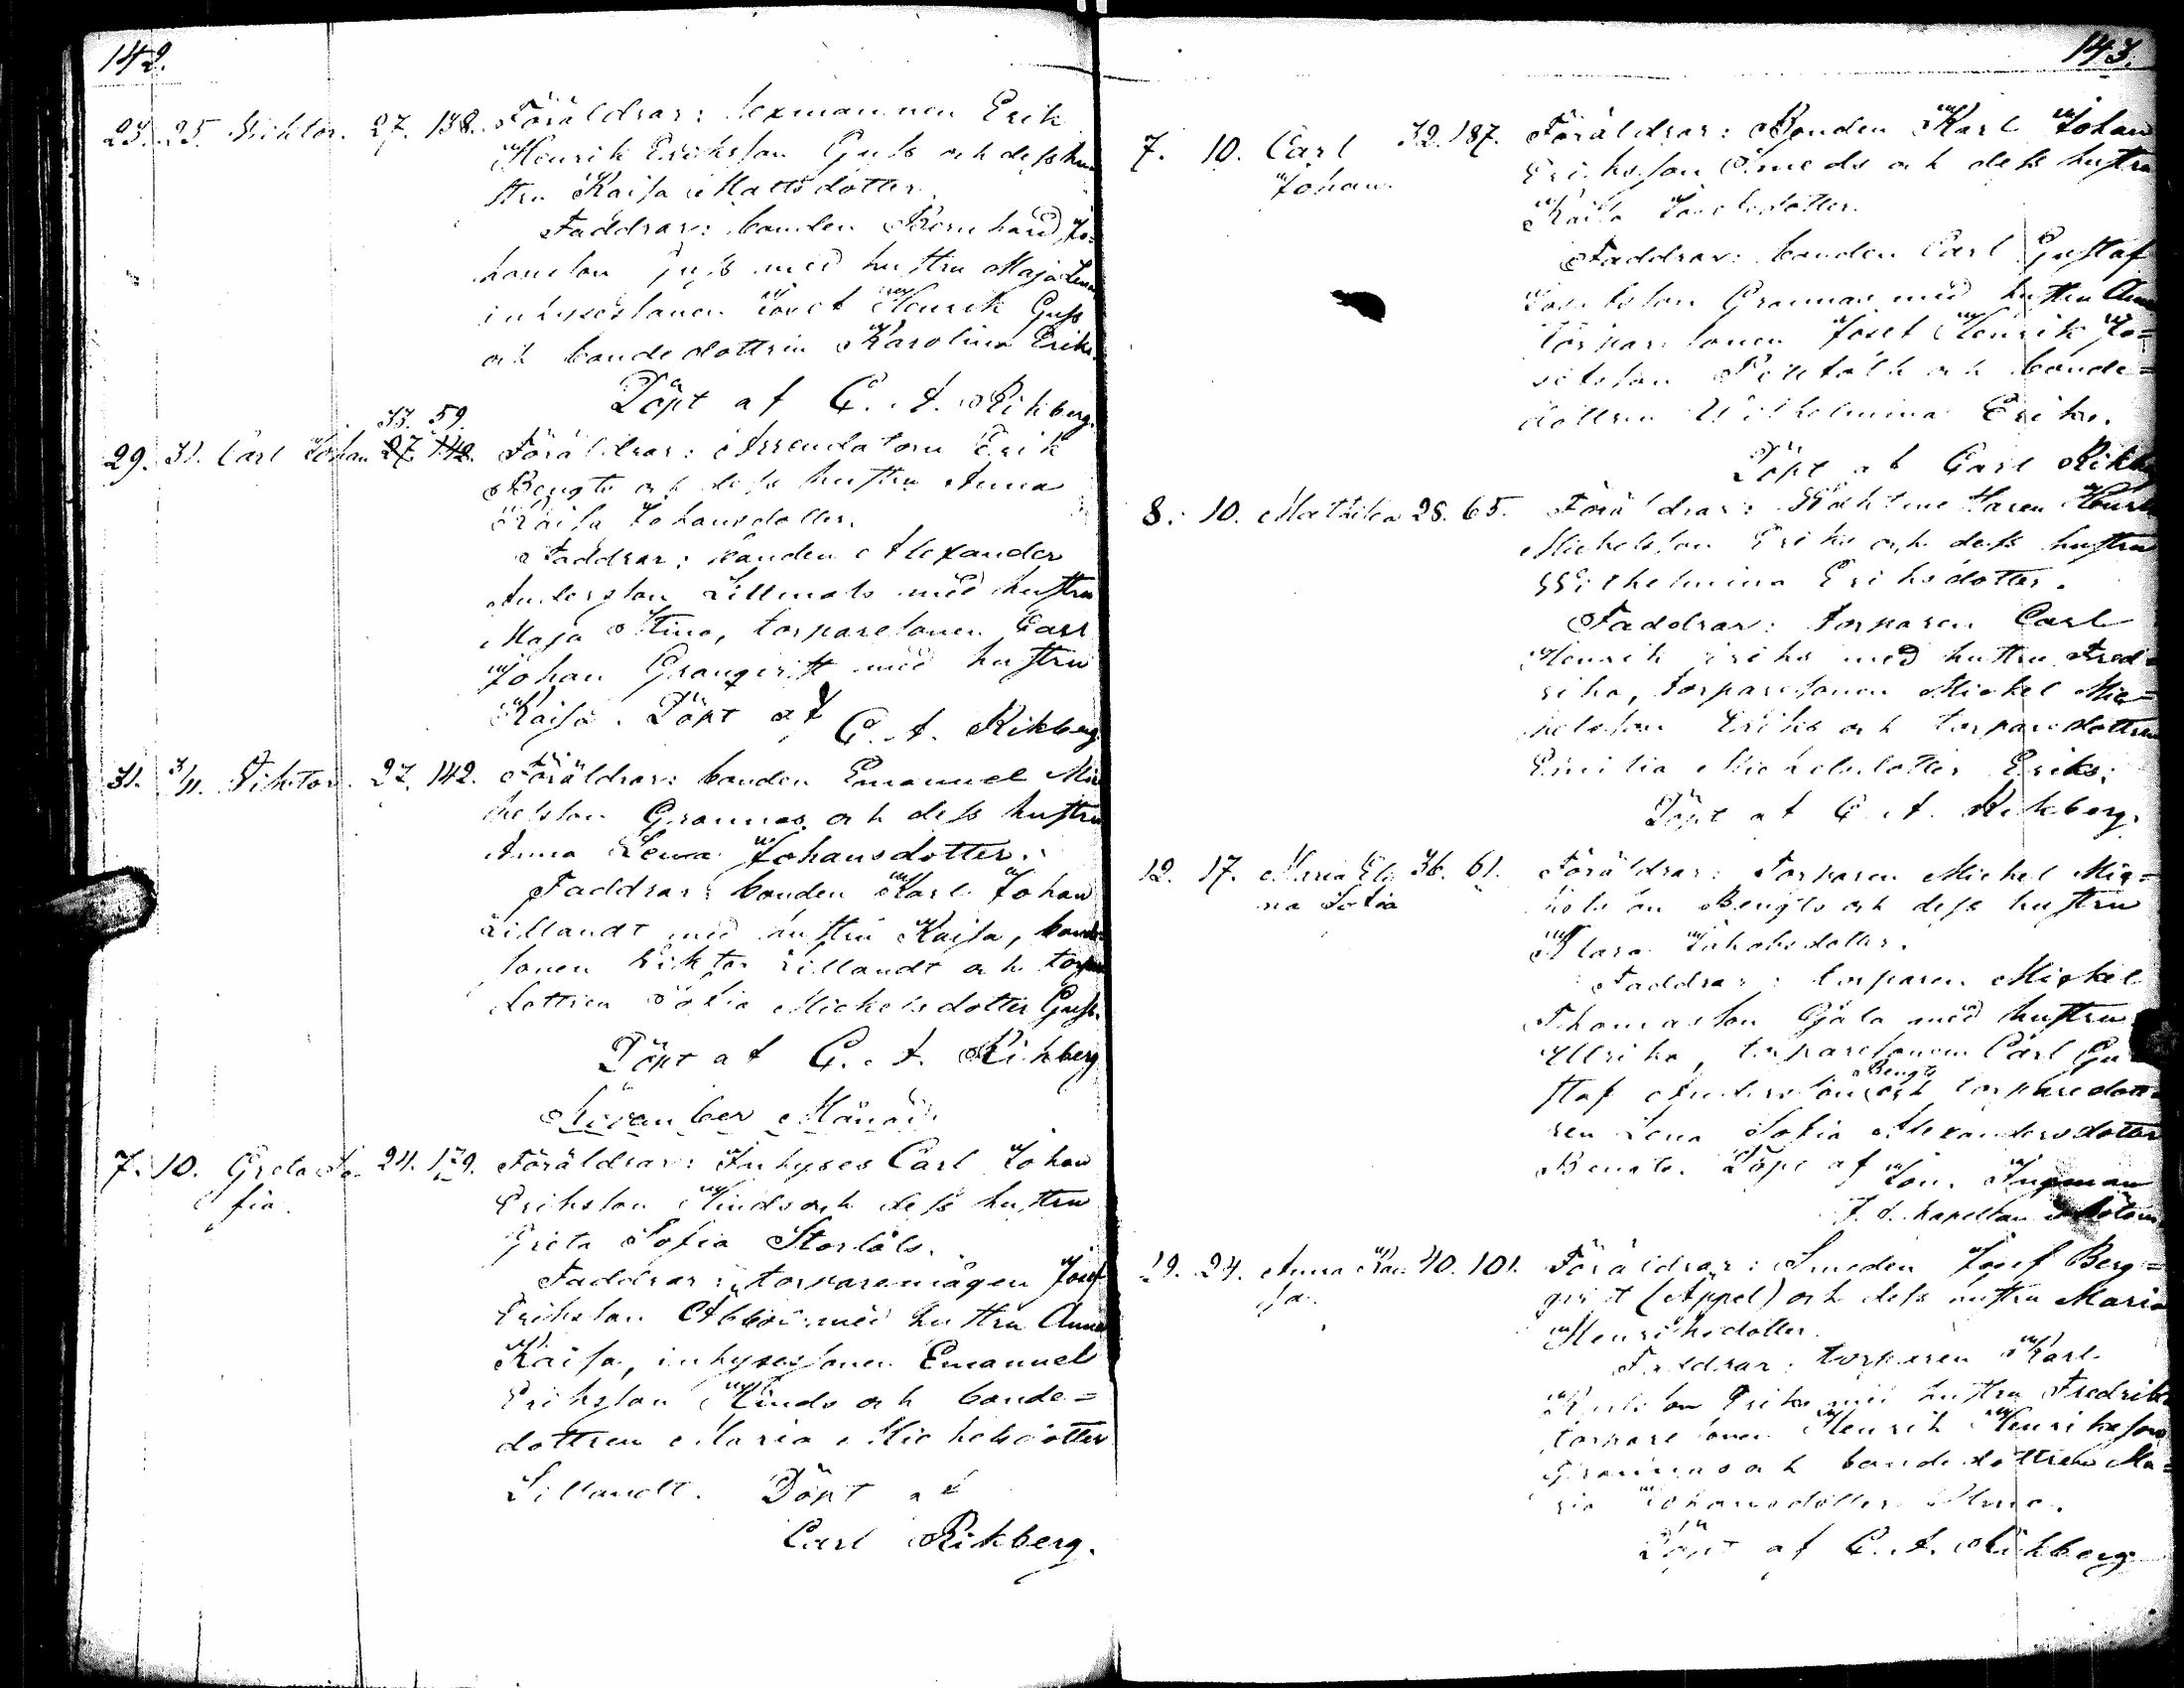 142.
23. 25. Viktor. 27. 138. Föräldrar: Sexmannen Erik
Henrik Eriksson Guss och dess hu
stru Kaisa Mattsdotter.
Faddrar: bonden Bernhard Jo=
hansson Guss med hustru Maja Lena
inhysessonen Josef Henrik Guss
och bondedottren Karolina Eriks.
Döpt af C. A. Rikberg.
33. 59.
29. 31. Carl Johan 27. 142. Föräldrar: Arrendatorn Erik
Bengts och dess hustru Anna
Kaisa Johansdotter.
Faddrar: bonden Alexander
Andersson Lillmats med hustru
Maja Stina, torparesonen Carl
Johan Granqvist med hustru
Kaisa. Döpt af C. A. Rikberg.
31. 3/11. Viktor. 27. 142. Föräldrar: bonden Emanuel Mic
kelsson Grannas och dess hustru
Anna Lena Johansdotter.
Faddrar: bonden Karl Johan
Lillandt med hustru Kajsa, bonde
sonen Viktor Lillandt och torpare
dottren Sofia Mickelsdotter Guss.
Döpt af C. A. Rikberg
November Månad.
7. 10. Greta So- 24. 179. Föräldrar: Inhyses Carl Johan
fia. Eriksson Kinds och dess hustru
Greta Sofia Storlåls.
Faddrar: torparemågen Josef
Eriksson Abbor med hustru Anna
Kaisa, inhysessonen Emanuel
Eriksson Kinds och bonde=
dottren Maria Mickelsdotter
Lillandt. Döpt af
Carl Rikberg.
143.
7. 10. Carl 32. 187. Föräldrar: Bonden Karl Johan
Johan. Eriksson Smeds och dess hustru
Kaisa Josefsdotter.
Faddrar: bonden Carl Gustaf
Josefsson Grannas med hustru Anna
torparesonen Josef Henrik Jo=
sefsson och bonde=
dottren Wilhelmina Eriks.
Döpt af Carl Rikb
8. 10. Mathilda 28. 65. Föräldrar: Henrik
Mickelsson Eriks och dess hustru
Wilhelmina Eriksdotter.
Faddrar: torparen Carl
Henrik Eriks med hustru Fred=
rika, torparesonen Mickel Mic=
kelsson Eriks och torparedottren
Emilia Mickelsdotter Eriks.
Döpt af C. A. Rikberg.
12. 17. Maria Eli 36. 61. Föräldrar: Torparen Mickel Mic=
na Sofia kelsson Bengts och dess hustru
Klara Jakobsdotter.
Faddrar: torparen Mickel
Thomasson Gjala med hustru
Ullrika, torparesonen Carl Gu
Bengts
staf Andersson och torparedott
ren Lena Sofia Alexandersdotter
Bengts. Döpt af Jon. Ingman
19. 24. Anna Kai 40. 101. Föräldrar: Smeden Josef Berg=
sa. qvist (Appel) och dess hustru Maria
Henriksdotter.
Faddrar: torparen Karl
Karlsson Eriks med hustru Fredrika
torparesonen Henrik Henriksson
Grannas och bondedottren Ma=
ria Johansdotter
Döpt af C. A. Rikberg